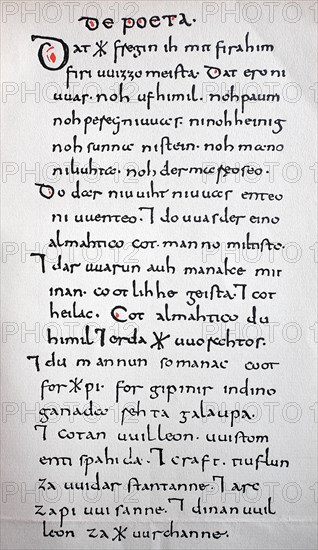 De poeta.
Dat ᛡ fregin ih mit firahim
firi uuizzo meista. Dat ero ni
uuas. noh ufhimil. noh paum
noh pereg ni uuas. ni noh heinig
noh sunna ni stein. noh mano
ni liuhta. noh der mareo seo.
Do dar niuuiht niuuas enteo
ni uuenteo. ⁊ do uuas der eino
almahtico cot. manno miltisto.
⁊ dar uuarun auh manake mit
inan. cootlihhe geista. ⁊ cot
heilac. Cot almahtico du
himil ⁊ erda ᛡ uuorhtos.
⁊ du mannun so manac coot
for ᛡ pi. for gipinir indino
ganada rehta galaupa.
⁊ cotan uuilleon. uuistom
enti spahida. ⁊ craft. tiuflun
za uuidar stantanne. ⁊ arc
za pi uuisanne. ⁊ dinan uuil
leon za ᛡ uurchanne.